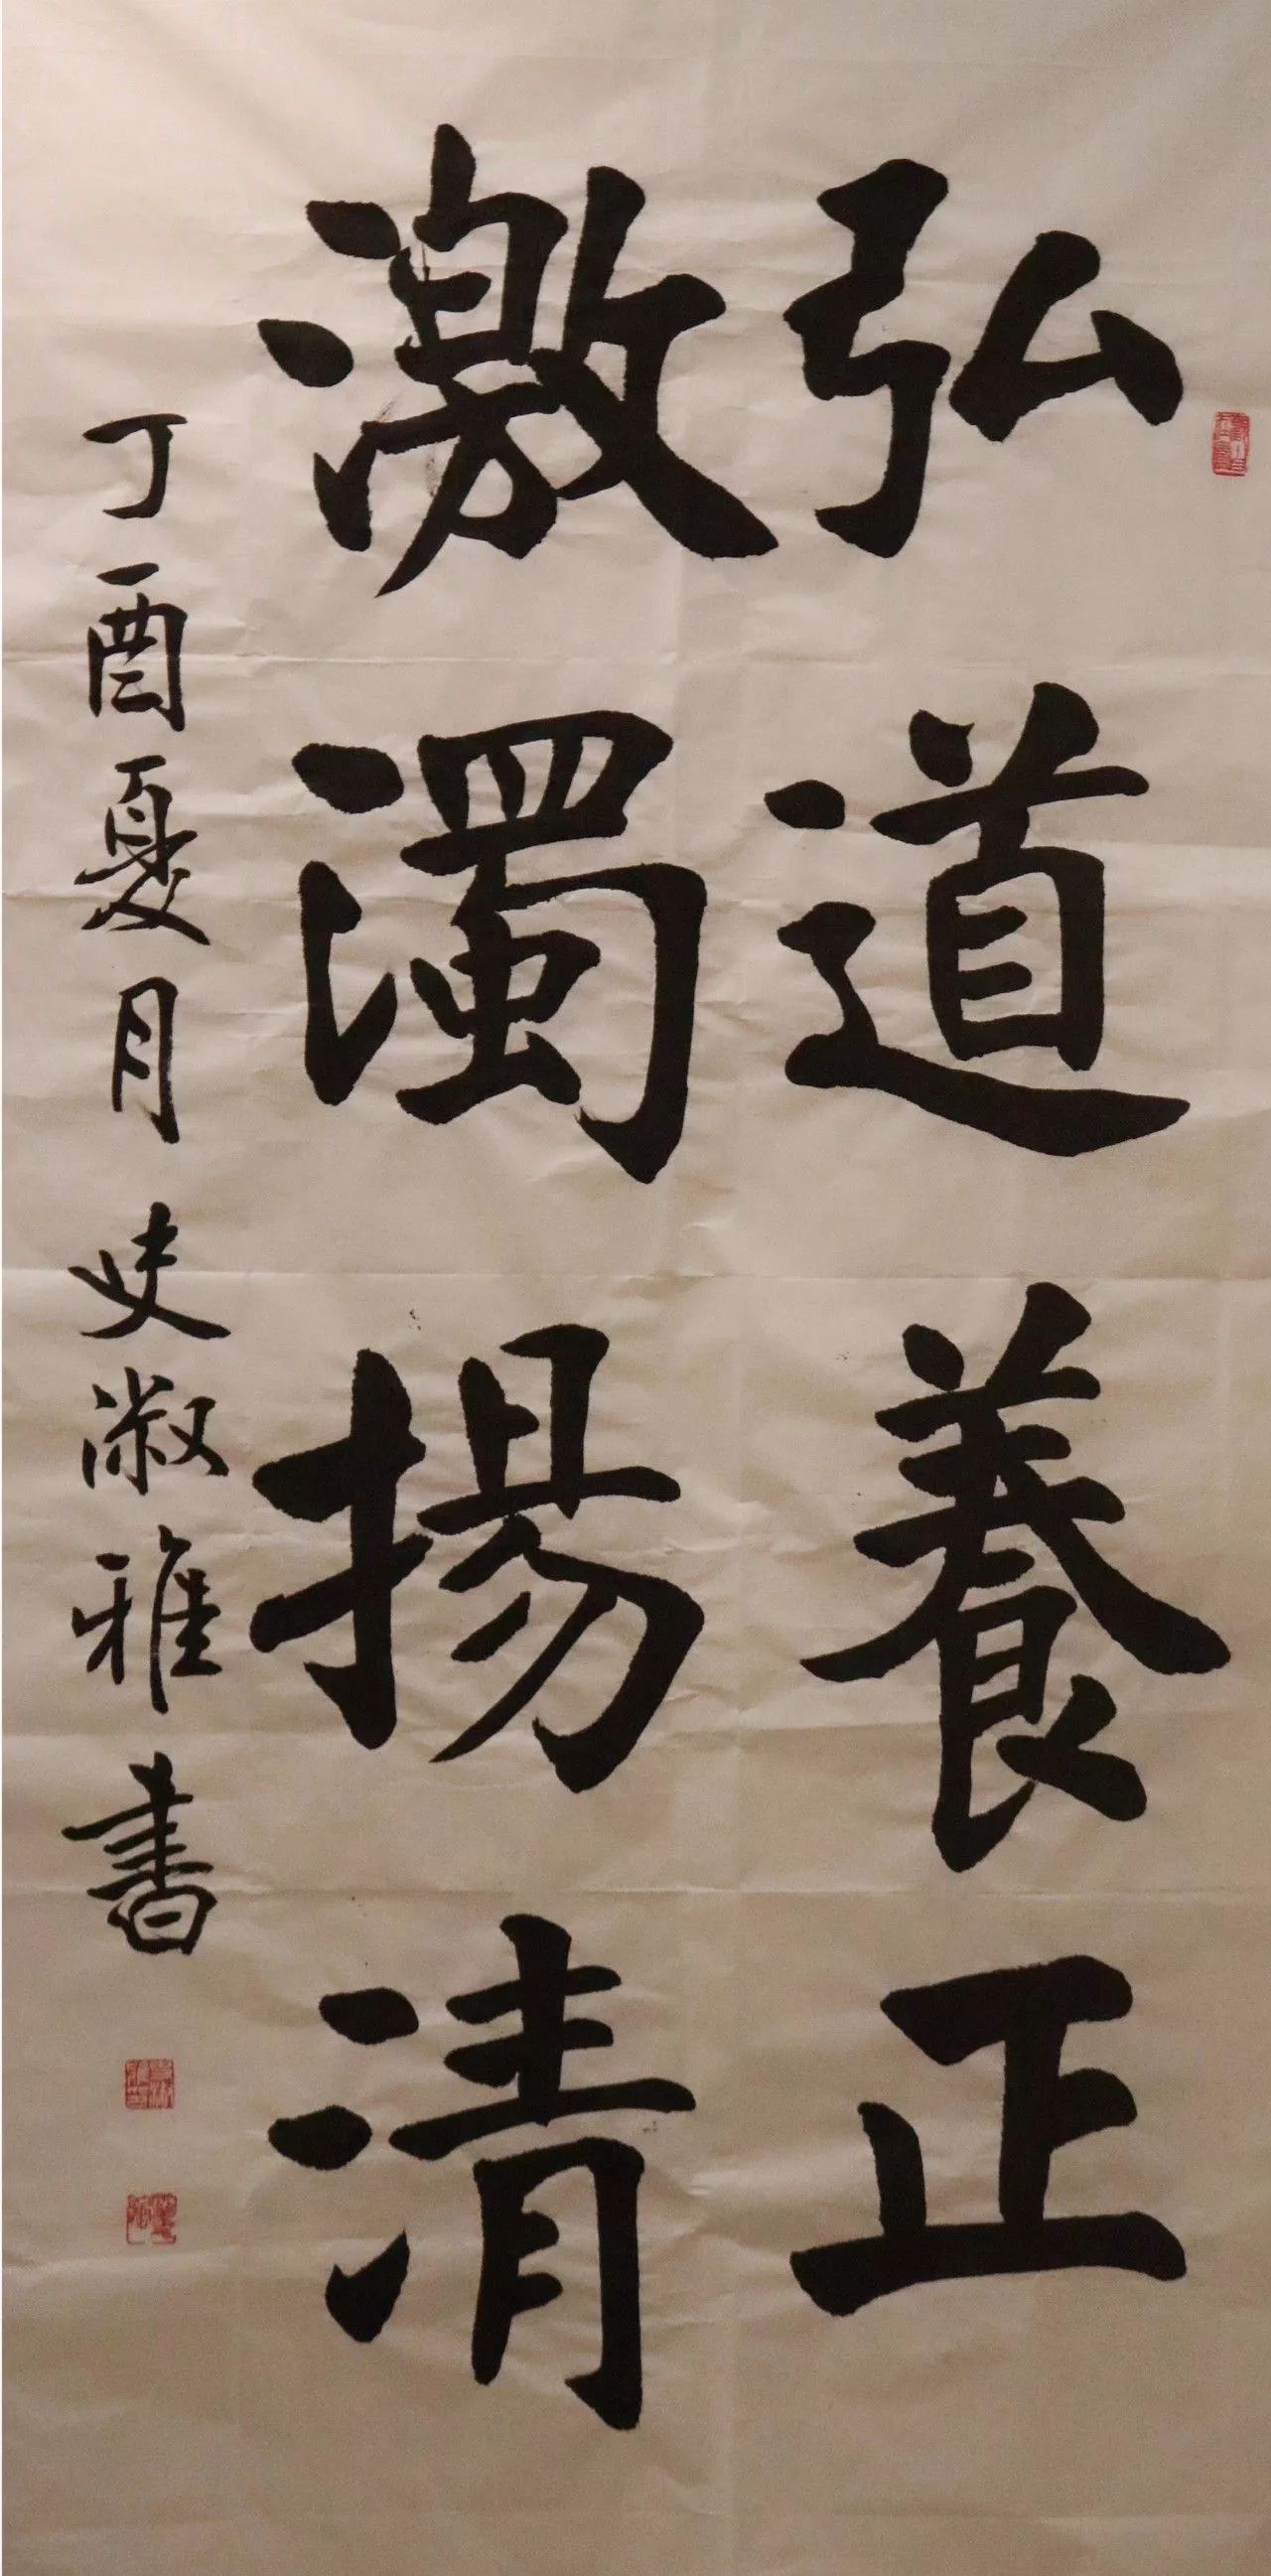 弘道養正
激濁揚清
丁酉夏月史淑雅書